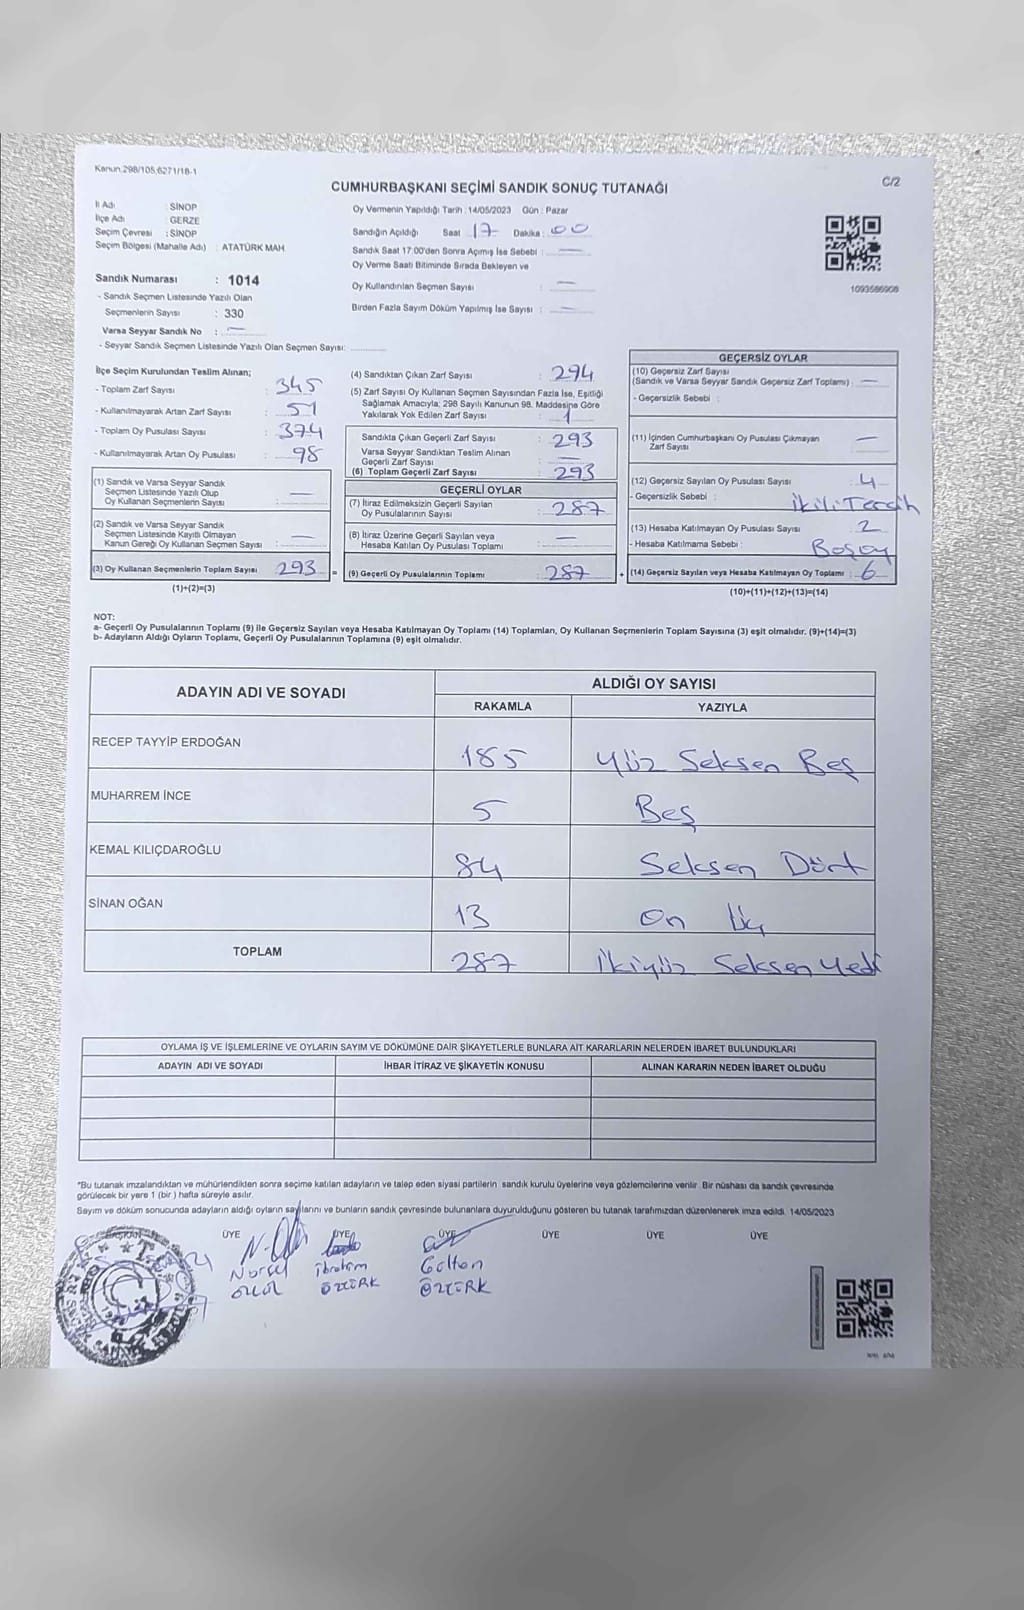 Kanun:298/105;6271/18-1
C/2
CUMHURBAŞKANI SEÇİMİ SANDIK SONUÇ TUTANAĞI
İl Adı : SİNOP
İlçe Adı : GERZE
Seçim Çevresi : SİNOP
Seçim Bölgesi (Mahalle Adı) : ATATÜRK MAH
Sandık Numarası : 1014
- Sandık Seçmen Listesinde Yazılı Olan
Seçmenlerin Sayısı : 330
Varsa Seyyar Sandık No : —
- Seyyar Sandık Seçmen Listesinde Yazılı Olan Seçmen Sayısı:
Oy Vermenin Yapıldığı Tarih : 14/05/2023 Gün : Pazar
Sandığın Açıldığı Saat 17 Dakika : 00
Sandık Saat 17:00'den Sonra Açımış İse Sebebi : —
Oy Verme Saati Bitiminde Sırada Bekleyen ve
Oy Kullandırılan Seçmen Sayısı : —
Birden Fazla Sayım Döküm Yapılmış İse Sayısı : —
1093586908
İlçe Seçim Kurulundan Teslim Alınan;
- Toplam Zarf Sayısı : 345
- Kullanılmayarak Artan Zarf Sayısı : 51
- Toplam Oy Pusulası Sayısı : 374
- Kullanılmayarak Artan Oy Pusulası : 98
(1) Sandık ve Varsa Seyyar Sandık
Seçmen Listesinde Yazılı Olup
Oy Kullanan Seçmenlerin Sayısı : —
(2) Sandık ve Varsa Seyyar Sandık
Seçmen Listesinde Kayıtlı Olmayan
Kanun Gereği Oy Kullanan Seçmen Sayısı : —
(3) Oy Kullanan Seçmenlerin Toplam Sayısı 293 =
(1)+(2)=(3)
(4) Sandıktan Çıkan Zarf Sayısı : 294
(5) Zarf Sayısı Oy Kullanan Seçmen Sayısından Fazla İse, Eşitliği
Sağlamak Amacıyla; 298 Sayılı Kanunun 98. Maddesine Göre
Yakılarak Yok Edilen Zarf Sayısı : 1
Sandıkta Çıkan Geçerli Zarf Sayısı : 293
Varsa Seyyar Sandıktan Teslim Alınan
Geçerli Zarf Sayısı : —
(6) Toplam Geçerli Zarf Sayısı : 293
GEÇERLİ OYLAR
(7) İtiraz Edilmeksizin Geçerli Sayılan
Oy Pusulalarının Sayısı : 287
(8) İtiraz Üzerine Geçerli Sayılan veya
Hesaba Katılan Oy Pusulası Toplamı : —
(9) Geçerli Oy Pusulalarının Toplamı : 287 +
GEÇERSİZ OYLAR
(10) Geçersiz Zarf Sayısı
(Sandık ve Varsa Seyyar Sandık Geçersiz Zarf Toplamı) : —
- Geçersizlik Sebebi :
(11) İçinden Cumhurbaşkanı Oy Pusulası Çıkmayan
Zarf Sayısı : —
(12) Geçersiz Sayılan Oy Pusulası Sayısı : 4
- Geçersizlik Sebebi : İkili Tercih
(13) Hesaba Katılmayan Oy Pusulası Sayısı : 2
- Hesaba Katılmama Sebebi : Boşoy
(14) Geçersiz Sayılan veya Hesaba Katılmayan Oy Toplamı : 6
(10)+(11)+(12)+(13)=(14)
NOT:
a- Geçerli Oy Pusulasının Toplamı (9) ile Geçersiz Sayılan veya Hesaba Katılmayan Oy Toplamı (14) Toplamları, Oy Kullanan Seçmenlerin Toplam Sayısına (3) eşit olmalıdır. (9)+(14)=(3)
b- Adayların Aldığı Oyların Toplamı, Geçerli Oy Pusulalarının Toplamına (9) eşit olmalıdır.
ADAYIN ADI VE SOYADI
ALDIĞI OY SAYISI
RAKAMLA YAZIYLA
RECEP TAYYİP ERDOĞAN 185 Yüz Seksen Beş
MUHARREM İNCE 5 Beş
KEMAL KILIÇDAROĞLU 84 Seksen Dört
SİNAN OĞAN 13 On Üç
TOPLAM 287 İkiyüz Seksen Yedi
OYLAMA İŞ VE İŞLEMLERİNE VE OYLARIN SAYIM VE DÖKÜMÜNE DAİR ŞİKAYETLERLE BUNLARA AİT KARARLARIN NELERDEN İBARET BULUNDUKLARI
ADAYIN ADI VE SOYADI İHBAR İTİRAZ VE ŞİKAYETİN KONUSU ALINAN KARARIN NEDEN İBARET OLDUĞU
*Bu tutanak imzalandıktan ve mühürlendikten sonra seçime katılan adayların ve talep eden siyasi partilerin sandık kurulu üyelerine veya gözlemcilerine verilir. Bir nüshası da sandık çevresinde
görülecek bir yere 1 (bir ) hafta süreyle asılır.
Sayım ve döküm sonucunda adayların aldığı oyların sayılarını ve bunların sandık çevresinde bulunanlara duyurulduğunu gösteren bu tutanak tarafımızdan düzenlenerek imza edildi. 14/05/2023
BAŞKAN ÜYE ÜYE ÜYE ÜYE ÜYE ÜYE
İbrahim
ÖZTÜRK ÖZTÜRK